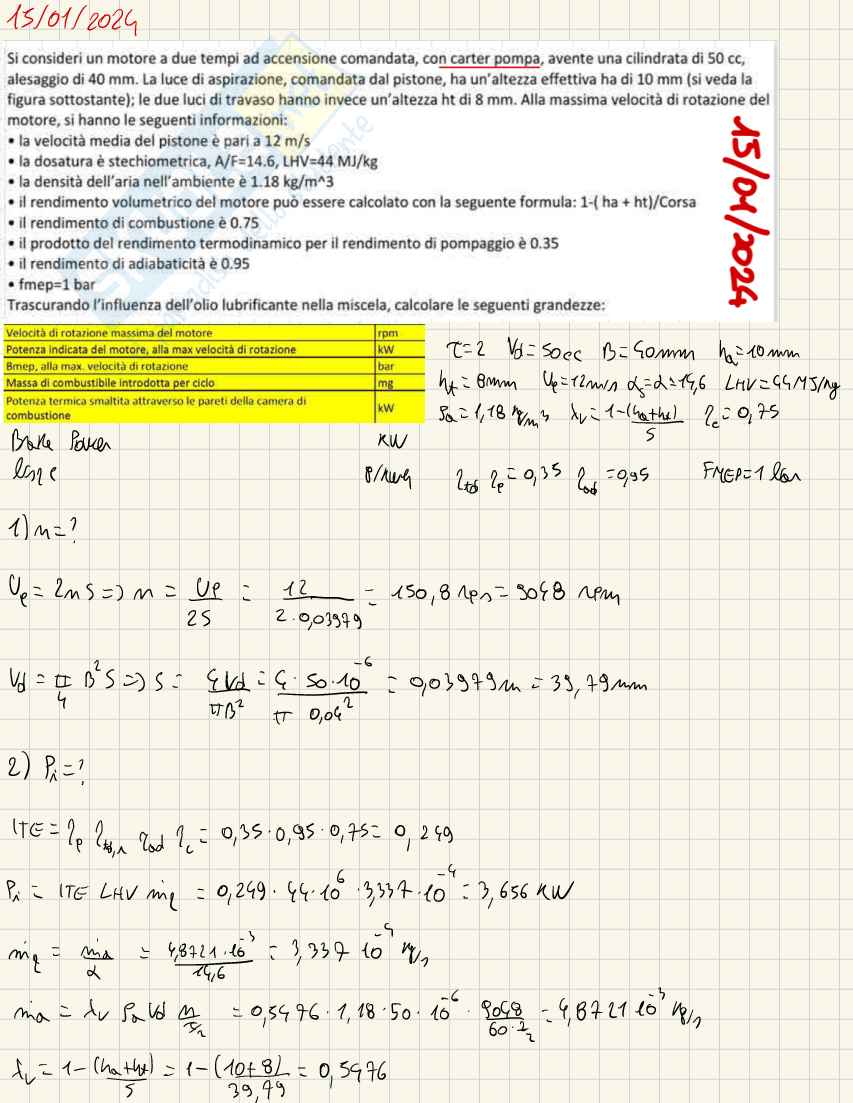 15/01/2024
Si consideri un motore a due tempi ad accensione comandata, con carter pompa, avente una cilindrata di 50 cc,
alesaggio di 40 mm. La luce di aspirazione, comandata dal pistone, ha un'altezza effettiva ha di 10 mm (si veda la
figura sottostante); le due luci di travaso hanno invece un'altezza ht di 8 mm. Alla massima velocità di rotazione del
motore, si hanno le seguenti informazioni:
• la velocità media del pistone è pari a 12 m/s
• la dosatura è stechiometrica, A/F=14.6, LHV=44 MJ/kg
• la densità dell'aria nell'ambiente è 1.18 kg/m^3
• il rendimento volumetrico del motore può essere calcolato con la seguente formula: 1-( ha + ht)/Corsa
• il rendimento di combustione è 0.75
• il prodotto del rendimento termodinamico per il rendimento di pompaggio è 0.35
• il rendimento di adiabaticità è 0.95
• fmep=1 bar
Trascurando l'influenza dell'olio lubrificante nella miscela, calcolare le seguenti grandezze:
15/01/2024
Velocità di rotazione massima del motore rpm
Potenza indicata del motore, alla max velocità di rotazione kW
Bmep, alla max. velocità di rotazione bar
Massa di combustibile introdotta per ciclo mg
Potenza termica smaltita attraverso le pareti della camera di
combustione kW
τ=2 Vd=50cc B=40mm ha=10mm
ht=8mm Up=12m/s αs=α=14,6 LHV=44MJ/kg
ρa=1,18 kg/m³ λv=1-(ha+ht)/S ηc=0,75
Brake Power KW
bsfc g/kWh
ηtd ηp=0,35 ηad=0,95 FMEP=1 bar
1) n=?
Up=2nS=> n = Up/2S = 12/2·0,03979 = 150,8 rps=9048 rpm
Vd = π/4 B²S=> S = 4Vd/πB² = 4·50·10⁻⁶/π 0,04² = 0,03979m = 39,79mm
2) Pi=?
ITE=ηp ηtd,i ηad ηc = 0,35·0,95·0,75= 0,249
Pi = ITE LHV ṁf = 0,249·44·10⁶·3,337·10⁻⁴ = 3,656 KW
ṁf = ṁa/α = 4,8721·10⁻³/14,6 = 3,337 10⁻⁴ kg/s
ṁa = λv ρa Vd n/ = 0,5476·1,18·50·10⁻⁶·9048/60· = 4,8721 10⁻³ kg/s
λv = 1-(ha+ht)/S = 1-(10+8)/39,79 = 0,5476